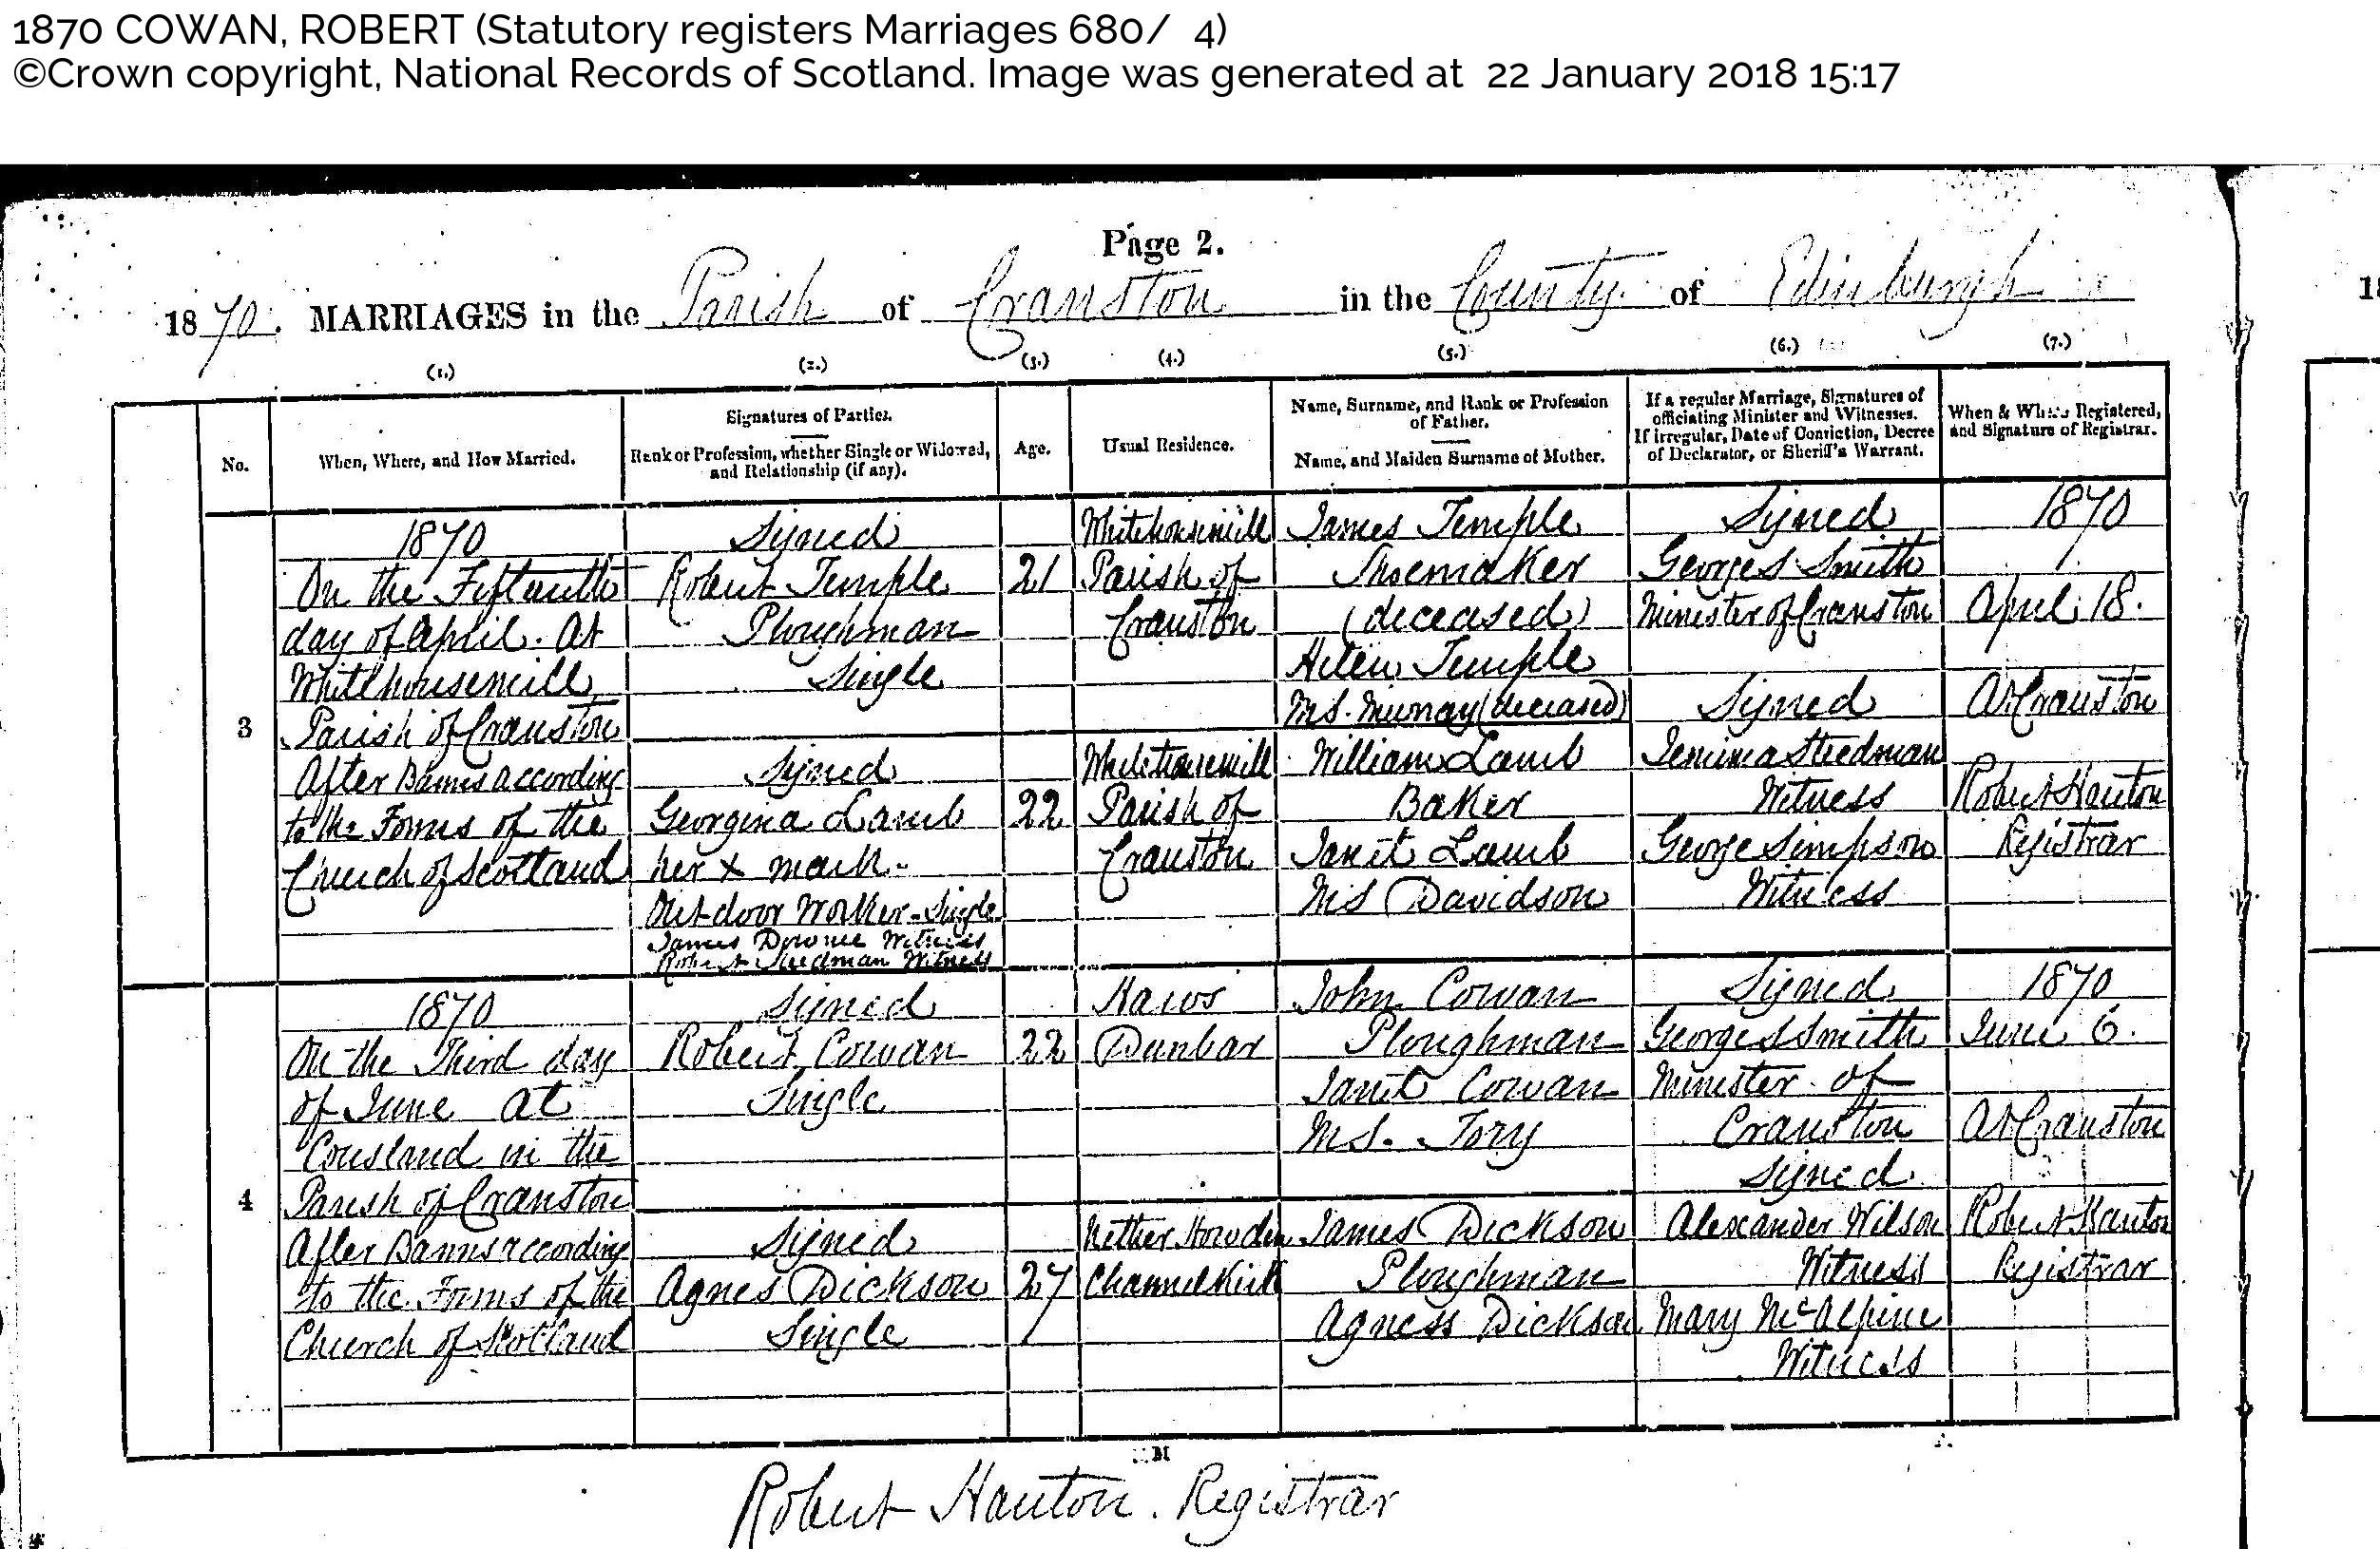 1870 COWAN, ROBERT (Statutory registers Marriages 680/ 4)
©Crown copyright, National Records of Scotland. Image was generated at 22 January 2018 15:17
Page 2.
1870. MARRIAGES in the Parish of Cranston in the County of Edinburgh
(1.) (2.) (3.) (4.) (5.) (6.) (7.)
No.
When, Where, and How Married.
Signatures of Parties.
Rank or Profession, whether Single or Widowed,
and Relationship (if any).
Age.
Usual Residence.
Name, Surname, and Rank or Profession
of Father.
Name, and Maiden Surname of Mother.
If a regular Marriage, Signatures of
officiating Minister and Witnesses.
If irregular, Date of Conviction, Decree
of Declarator, or Sheriff's Warrant.
When & Where Registered,
and Signature of Registrar.
3
1870
On the Fifteenth
day of April. At
Whitehousemill
Parish of Cranston
After Banns according
to the Forms of the
Church of Scotland
Signed
Robert Temple
Ploughman
Single
Signed
Georgina Lamb
her x mark
Out-door Worker - Single
James Downie Witness
Robert Steedman Witness
21
22
Whitehousemill
Parish of
Cranston
Whitehousemill
Parish of
Cranston
James Temple
Shoemaker
(deceased)
Helen Temple
M.S. Murray (deceased)
William Lamb
Baker
Janet Lamb
M.S Davidson
Signed
George S Smith
Minister of Cranston
Signed
Jemima Steedman
Witness
George Simpson
Witness
1870
April 18.
At Cranston
Robert Hanton
Registrar
4
1870
On the Third day
of June at
Cousland in the
Parish of Cranston
After Banns according
to the Forms of the
Church of Scotland
Signed
Robert Cowan
Single
Signed
Agnes Dickson
Single
22
27
Dunbar
Nether Howden
Channelkirk
John Cowan
Ploughman
Janet Cowan
M.S. Tory
James Dickson
Ploughman
Agness Dickson
Signed
George S Smith
Minister of
Cranston
Signed
Alexander Wilson
Witness
Mary McAlpine
Witness
1870
June 6.
At Cranston
Robert Hanton
Registrar
M
Robert Hanton. Registrar
18